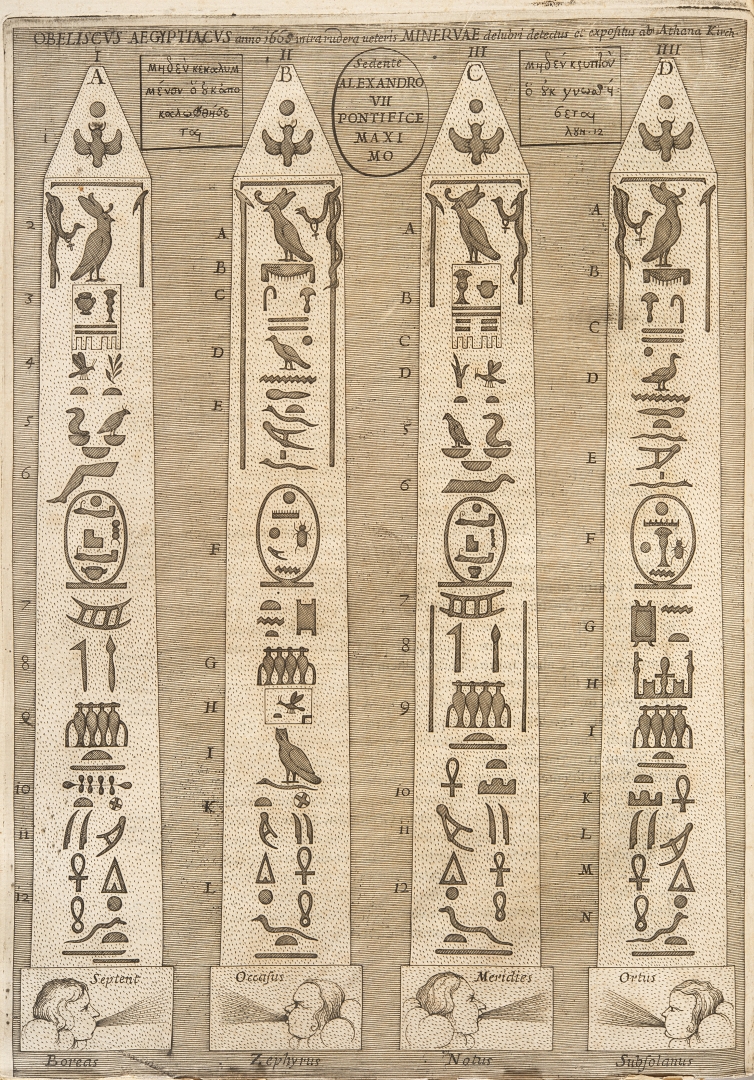 OBELISCVS AEGYPTIACVS anno 1665 intra rudera veteris MINERVAE delubri detectus et expositus ab Athana Kirch.
I II III IIII
A B C D
Μηδέν κεκαλυμ
μένον ὁ ὀκ ἀπο
καλωφθήσε
ται
Sedente
ALEXANDRO
VII
PONTIFICE
MAXI
MO
μηδεν κρυπτὸν
ὁ ὀκ γνωσθή
σεται
λυκ. 12
1
2
3
4
5
6
7
8
9
10
11
12
A
B
C
D
E
F
G
H
I
K
L
A
B
C
D
5
6
7
8
9
10
11
12
A
B
C
D
E
F
G
H
I
K
L
M
N
Septent Occasus Meridies Ortus
Boreas Zephyrus Notus Subsolanus